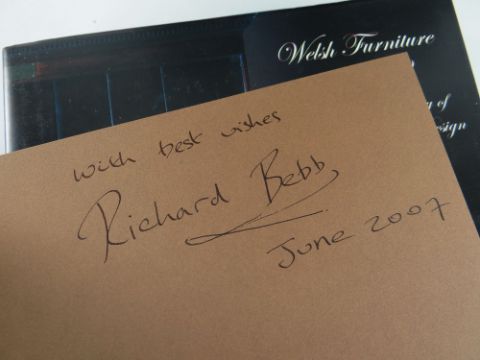 Welsh Furniture
of
esign
with best wishes
Richard Bebb
June 2007